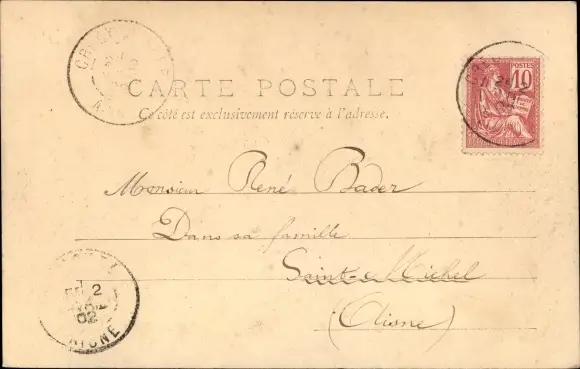 CARTE POSTALE
Ce côté est exclusivement réservé à l'adresse.
POSTES
10
Monsieur René Bader
Dans sa famille
Sainte-Michel
(Aisne)
2
02
AISNE